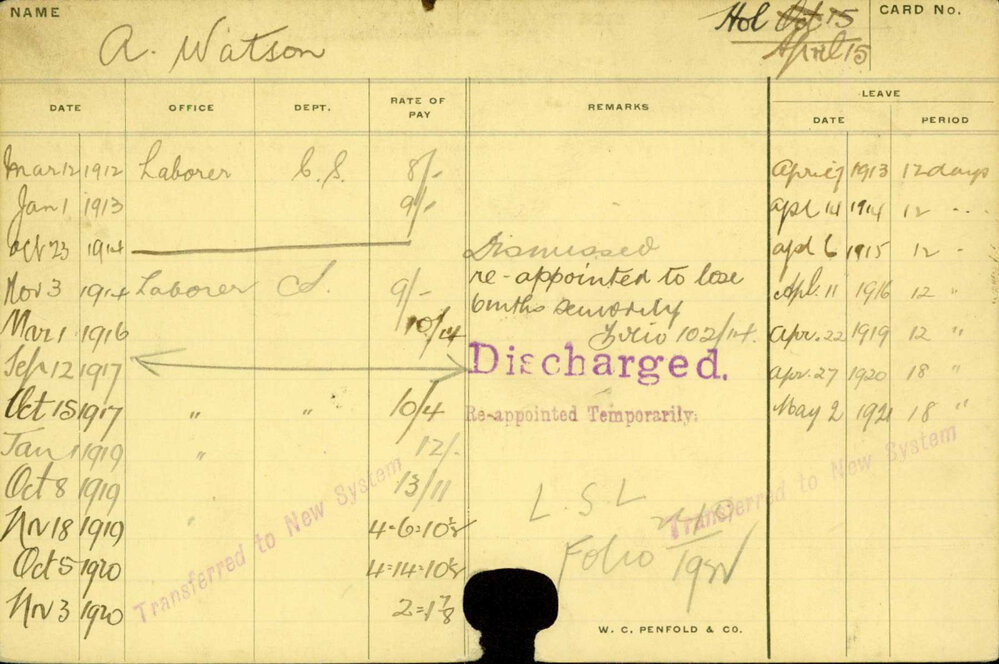 NAME
A. Watson
Hol Oct. 15
April 15
CARD No.
DATE OFFICE DEPT. RATE OF PAY REMARKS LEAVE
DATE PERIOD
Mar 12 1912 Laborer C.S. 8/- April 7 1913 12 days
Jan 1 1913 9/- apl 14 1914 12 "
Oct 23 1914 Dismissed apl 6 1915 12 "
Nov 3 1914 Laborer S. 9/- re-appointed to lose Apl. 11 1916 12 "
6mths seniority
Mar 1 1916 10/4 102/14. Apr. 22 1919 12 "
Sep 12 1917 Discharged. Apr. 27 1920 18 "
Oct 15 1917 " " 10/4 Re-appointed Temporarily. May 2 1921 18 "
Jan 1 1919 " 12/-
Oct 8 1919 13/11
L.S.L
Nov 18 1919 " 4-6-10½
Folio
Oct 5 1920 4=14=10½
Nov 3 1920 2=1⅞
Transferred to New System
Transferred to New System
W. C. PENFOLD & CO.